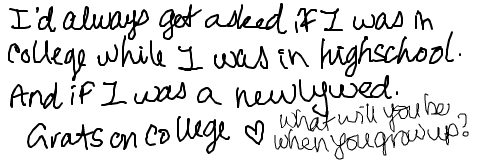 I'd always got asked if I was in
college while I was in highschool.
And if I was a newlywed.
Grats on college ♡ what will you be
when you grow up?